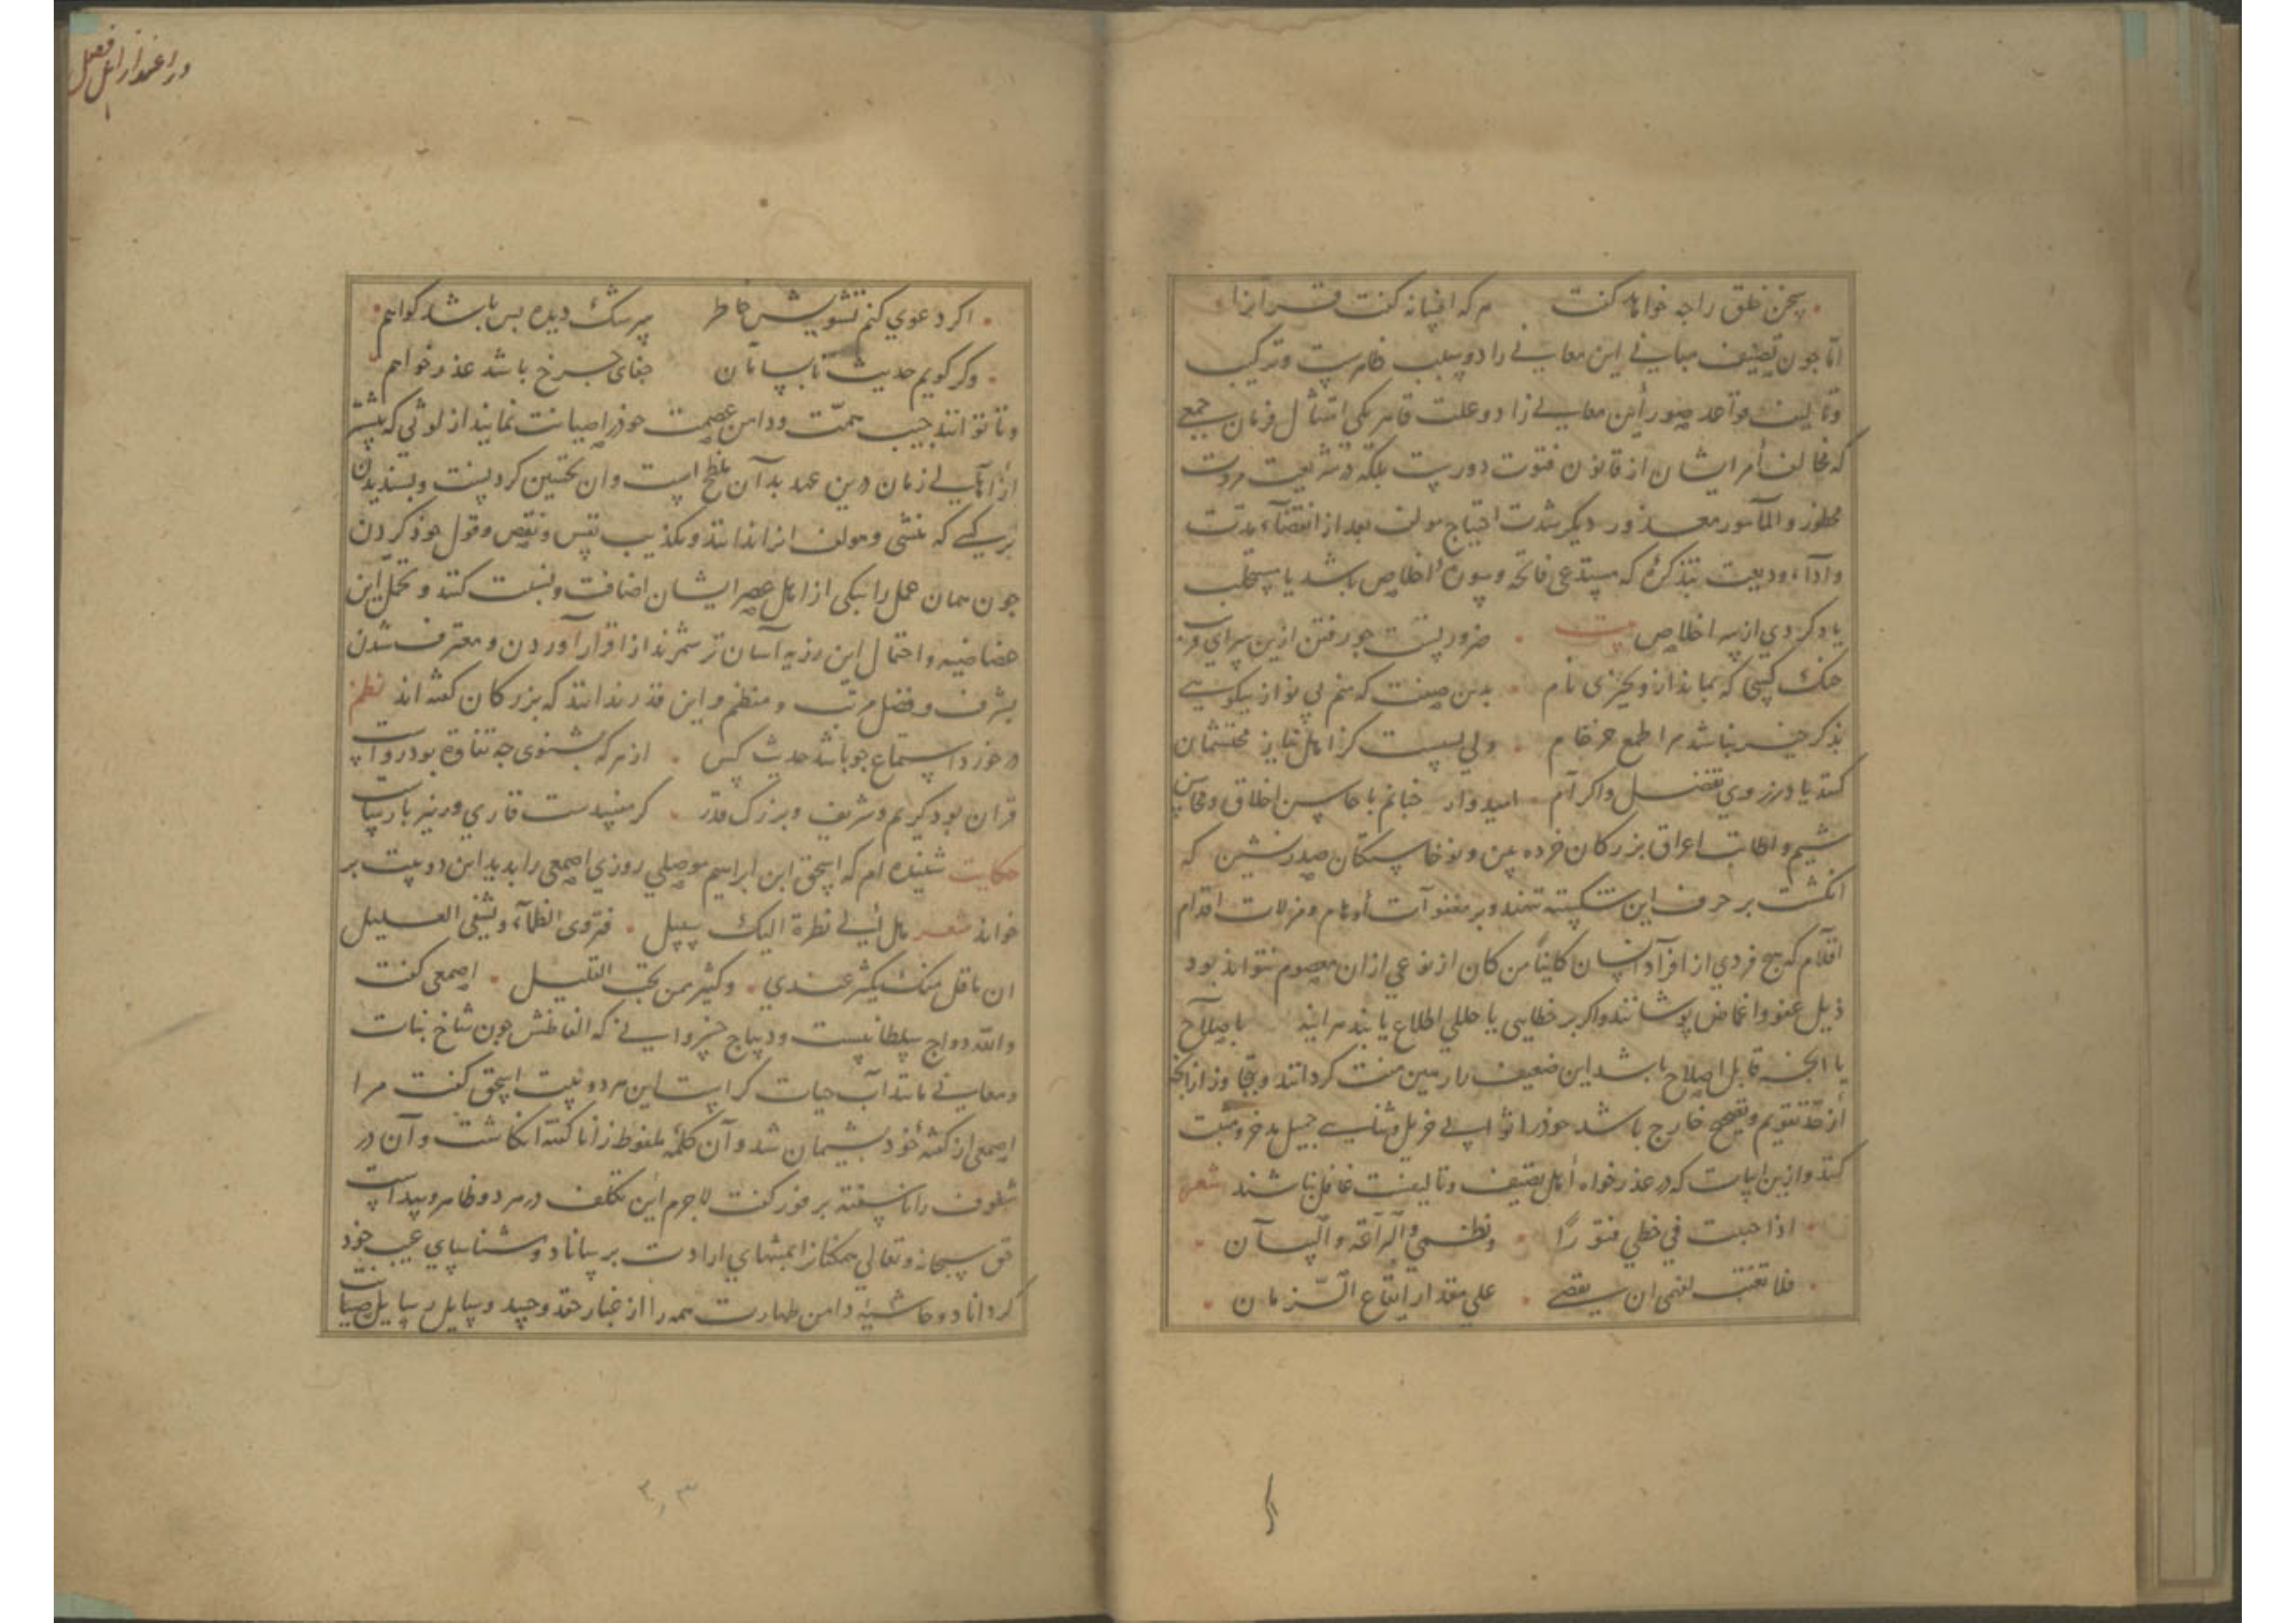 سخن خلق را چه خواهد گفت هر که افسانه گفت قرآنرا
اما چون تصنیف مبانی این معانی را دو سبب ظاهرست و ترکیب
و تالیف قواعد صور این معانی را دو علت قاهر یکی امتثال فرمان جمعی
که مخالف أمر ایشان از قانون فتوت دورست بلکه در شریعت مروت
محظور و المأمور معذور دیگر شدت احتیاج مولف بعد از انقضاء مدت
و اداء ودیعت بتذکره که مستدعی فاتحه و سورهٔ اخلاص باشد یا مستجلب
یاد کردی از سر اخلاص بیت ضرورتست چو رفتن ازین سرای
خنک کسی که بماند ازو بخیری نام بدین صفت که منم بی نوا ز نیکویی
بذکر خیر نباشد مرا طمع ولی بسیست کز اهل نیاز محتشمان
کنند یاد ز روی تفضل و اکرام امیدوار چنانم با محاسن اخلاق و محاسن
شیم و اطائب اعراق بزرکان خرده بین و نوخاستکان صدرنشین که
انکشت بر حرف این شکسته ننهند و بر هفوات أوهام و مزلات اقدام
اقلام که هیچ فردی از افراد انسان کائنا من کان از نوعی از ان معصوم نتواند بود
ذیل عفو و اغماض پوشانند و اکر بر خطایی یا خللی اطلاع یابند هراینه باصلاح
با انچه قابل اصلاح باشد این ضعیف را رهین منت کردانند و تجاوز از انچ
از حد تقویم و تصحیح خارج باشد خوذرا ثواب جزیل و ثنای جمیل مدخر و مثبت
کنند و ازین ابیات که در عذرخواه أهل تصنیف و تالیفست غافل نباشند شعر
اذا أحسست فی خطی فتورا ونظمی والبراعة والبیان
فلا تعتب لفهمی ان نقصی علی مقدار ایقاع الزمان
در اعتذار اهل فضل
اکر دعوی کنم تشویش خاطر سرشک دیده بس باشد کواهم
وکر کویم حدیث نابسامان جفای چرخ باشد عذرخواهم
و تا توانند جیب همّت و دامن عصمت خوذرا صیانت نمایند از لوثی که بیشتر
از أهالی زمان درین عهد بدآن ملطخ است و ان تحسین کردنست و بسندیدن
بر کسی که منشی و مولف انرا ندانند و تکذیب نفس و نقض قول خوذ کردن
چون همان عمل را بیکی از اهل عصر ایشان اضافت و نسبت کنند و تحمل این
و احتمال این رزیه آسان تر شمرند از اقرار آوردن و معترف شدن
بشرف و فضل مرتب و منظم و این قدر ندانند که بزرکان کفته اند نظم
در خورد استماع چو باشد حدیث کس از هر که بشنوی چه تفاوت بود رواست
قران بود کریم و شریف و بزرک قدر کر مفیدست قاری ور نیز بارساست
حکایت شنیده ام که اسحق ابن ابراهیم موصلی روزی اصمعی را بدید این دو بیت بر
خواند شعر هل الی نظرة الیک سبیل فتروی الظماء ویشفی الغلیل
ان ما قل منک یکثر عندی وکثیر ممن تحب القلیل اصمعی کفت
والله دواج سلطانیست و دیباج خسروانی که الفاظش چون شاخ نبات
و معانی مانند آب حیات کراست این هر دو بیت اسحق کفت مرا
اصمعی از کفتهٔ خود بشیمان شد و آن کلمهٔ ملفوظ را ناکفته انکاشت و آن در
شفوف را ناسفته بر فور کفت لاجرم این تکلف در هر دو ظاهر و پیداست
حق سبحانه و تعالی همکنانرا بمنتهای ارادت برساناد و شناسای عیب خود
کرداناد و حاشیهٔ دامن طهارت همه را از غبار حقد و حسد